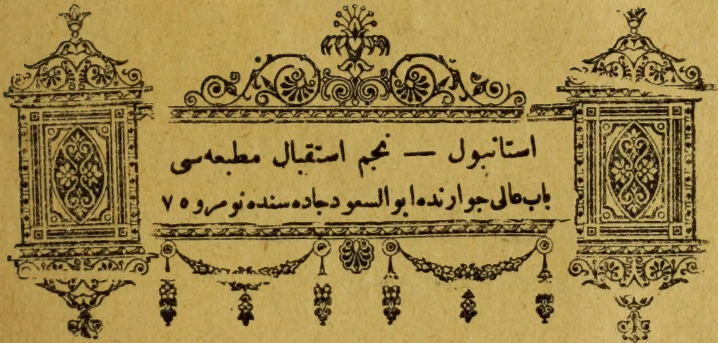 استانبول — نجم استقبال مطبعه‌سی
باب عالی جوارنده ابوالسعود جاده‌سنده نومرو ٧٥